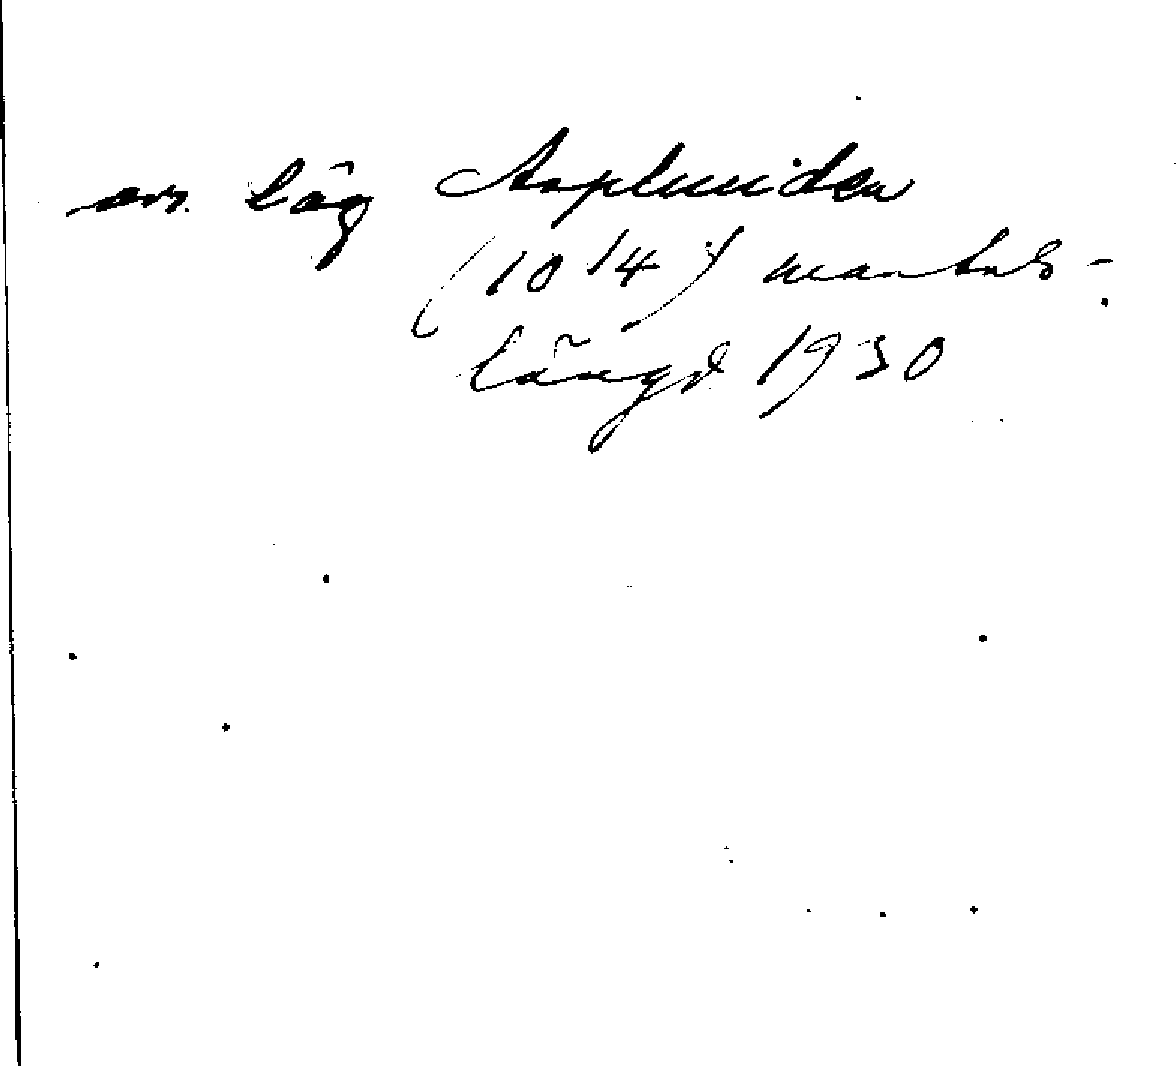 låg Asplunden
(10 1/4) mantals-
längd 1930